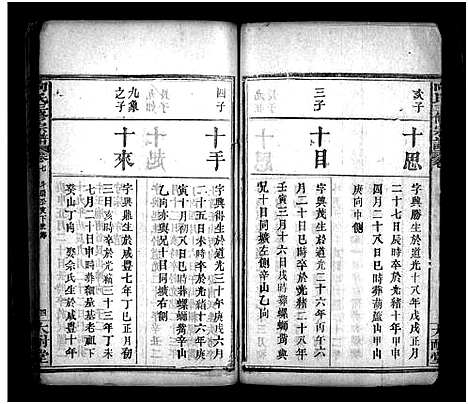 次子
十思
字興勝生於道光十八年戊戌正月
二十七日辰時卒於光緒十年甲申
四月二十八日巳時葬葫蘆山甲山
庚向中側
三子
十目
字興茂生於道光二十六年丙午
十月二十日巳時卒於光緒
壬寅三月十六日戌時葬螺螄旁山
兄十日同墳左側辛山乙向
四子
十手
字興得生於道光三十年庚戌六月
二十五日未時卒於光緒十六年庚
寅十月初八日巳時葬螺螄旁辛山
乙向亦與兄十目同墳右側
九象
之子
十來
字興鼎生於咸豐七年丁巳
三日亥時卒於光緒三十三年丁未
七月二十日申時葬
癸山丁向 娶余氏生於咸豐十年